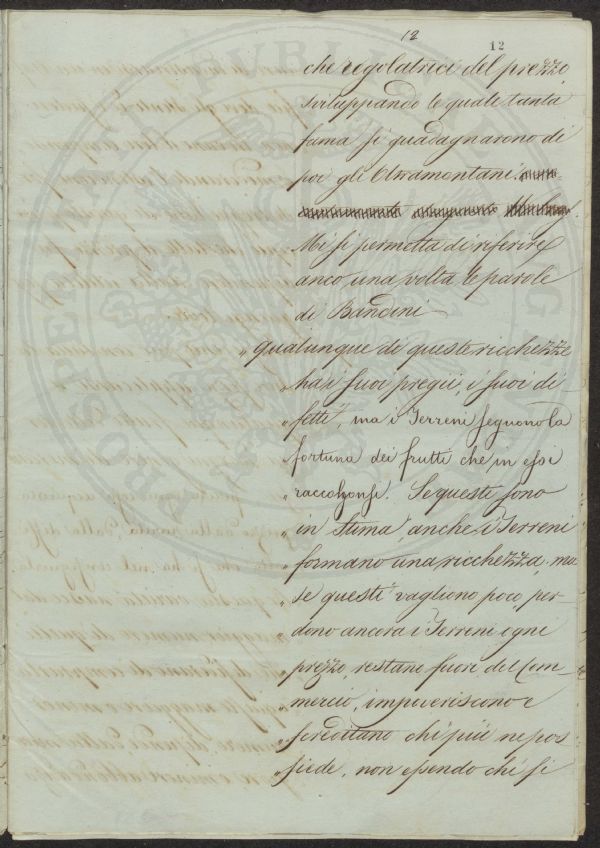 12
12
che regolatrici del prezzo,
sviluppando le quale tanta
fama si guadagnarono di
poi gli Oltramontani.
Mi si permetta di riferire
anco una volta le parole
di Bandini
„ qualunque di queste ricchezze
„ ha i suoi pregii, i suoi di
„ fetti, ma i Terreni seguono la
fortuna dei frutti che in essi
„ raccolgonsi. Se questi sono
„ in stima, anche i Terreni
„ formano una ricchezza, ma
„ se questi vagliono poco, per-
„ dono ancora i Terreni ogni
„ prezzo, restano fuori del Com-
„ mercii, impoveriscono e
„ screditano chi più ne pos
„ siede, non essendo chi si
PROSPERITATI PUBLICAE AUGENDAE